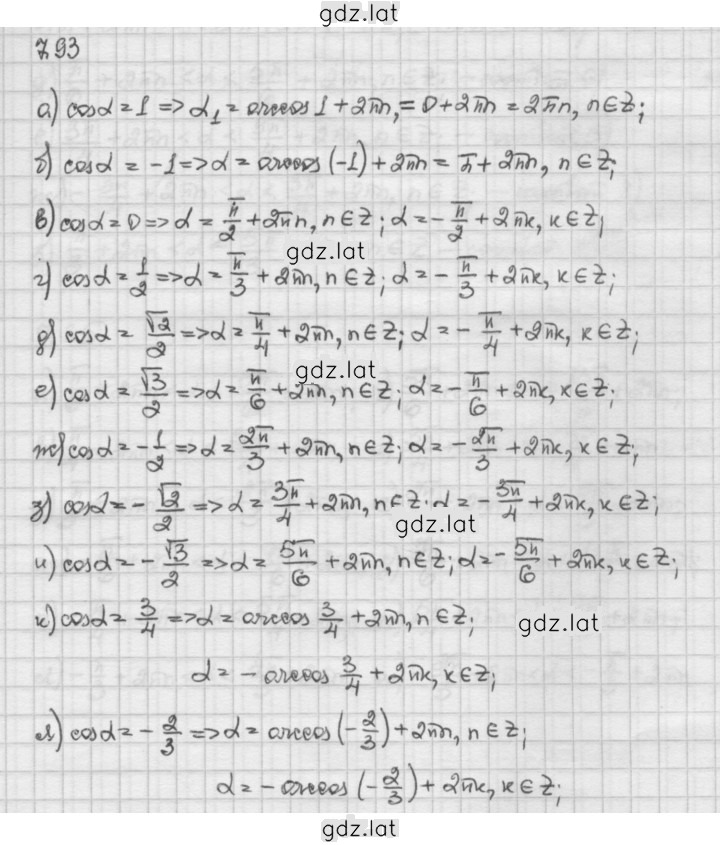 gdz.lat
793
а) cosα = 1 => α₁ = arccos 1 + 2πn, = 0 + 2πn = 2πn, n∈Z;
б) cosα = -1 => α = arccos (-1) + 2πn = π + 2πn, n∈Z;
в) cosα = 0 => α = π/2 + 2πn, n∈Z; α = -π/2 + 2πk, k∈Z;
gdz.lat
г) cosα = 1/2 => α = π/3 + 2πn, n∈Z; α = -π/3 + 2πk, k∈Z;
д) cosα = √2/2 => α = π/4 + 2πn, n∈Z; α = -π/4 + 2πk, k∈Z;
gdz.lat
е) cosα = √3/2 => α = π/6 + 2πn, n∈Z; α = -π/6 + 2πk, k∈Z;
ж) cosα = -1/2 => α = 2π/3 + 2πn, n∈Z; α = -2π/3 + 2πk, k∈Z;
з) cosα = -√2/2 => α = 3π/4 + 2πn, n∈Z. α = -3π/4 + 2πk, k∈Z;
gdz.lat
и) cosα = -√3/2 => α = 5π/6 + 2πn, n∈Z; α = -5π/6 + 2πk, k∈Z;
к) cosα = 3/4 => α = arccos 3/4 + 2πn, n∈Z;
gdz.lat
α = -arccos 3/4 + 2πk, k∈Z;
л) cosα = -2/3 => α = arccos (-2/3) + 2πn, n∈Z;
α = -arccos (-2/3) + 2πk, k∈Z;
gdz.lat